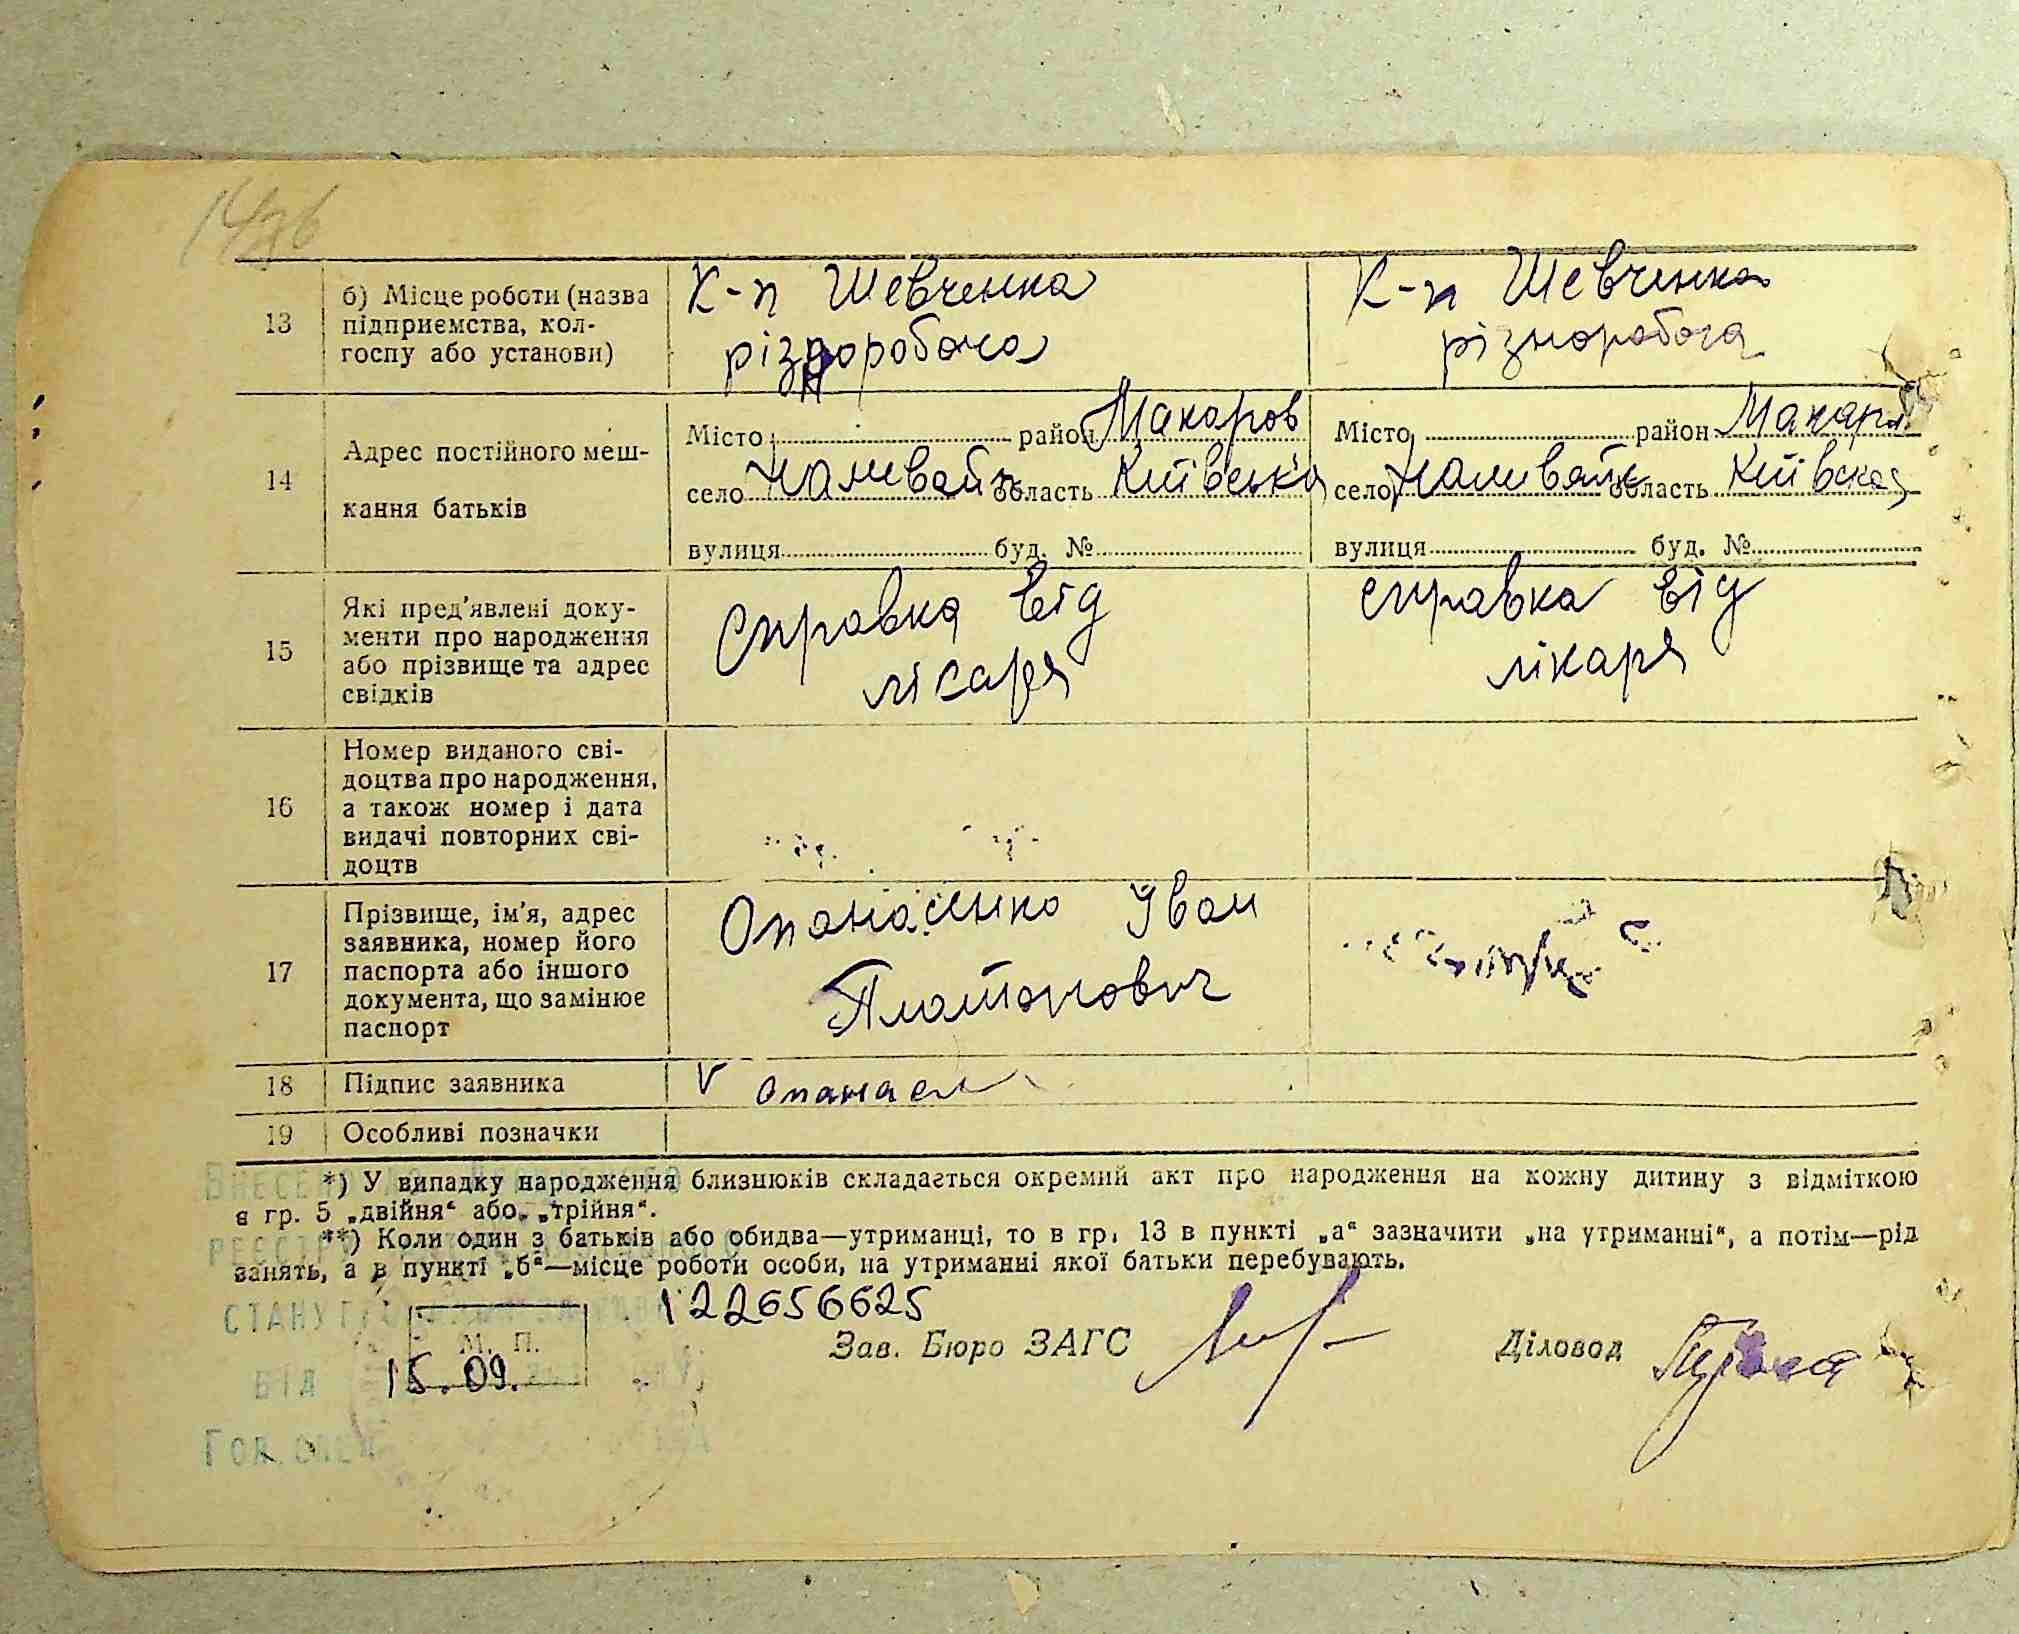 13 б) Місце роботи (назва підприємства, колгоспу або установи) К-п Шевченка К-п Шевченка
різноробоча різноробоча
14 Адрес постійного меш-
кання батьків
Місто район Макаров Місто район Макарів
село Наливайк область Київська село Наливайк область Київська
вулиця буд. № вулиця буд. №
15 Які пред'явлені доку-
менти про народження
або прізвище та адрес
свідків
Справка від справка від
лікаря лікаря
16 Номер виданого сві-
доцтва про народження,
а також номер і дата
видачі повторних сві-
доцтв
17 Прізвище, ім'я, адрес
заявника, номер його
паспорта або іншого
документа, що замінює
паспорт
Опанасенко Іван
Платонович
18 Підпис заявника V Опанасен
19 Особливі позначки
*) У випадку народження близнюків складається окремий акт про народження на кожну дитину з відміткою
в гр. 5 „двійня“ або „трійня“.
**) Коли один з батьків або обидва—утриманці, то в гр. 13 в пункті „а“ зазначити „на утриманні“, а потім—рід
занять, а в пункті „б“—місце роботи особи, на утриманні якої батьки перебувають.
122656625
М. П. Зав. Бюро ЗАГС Діловод
ВІД 15.09.